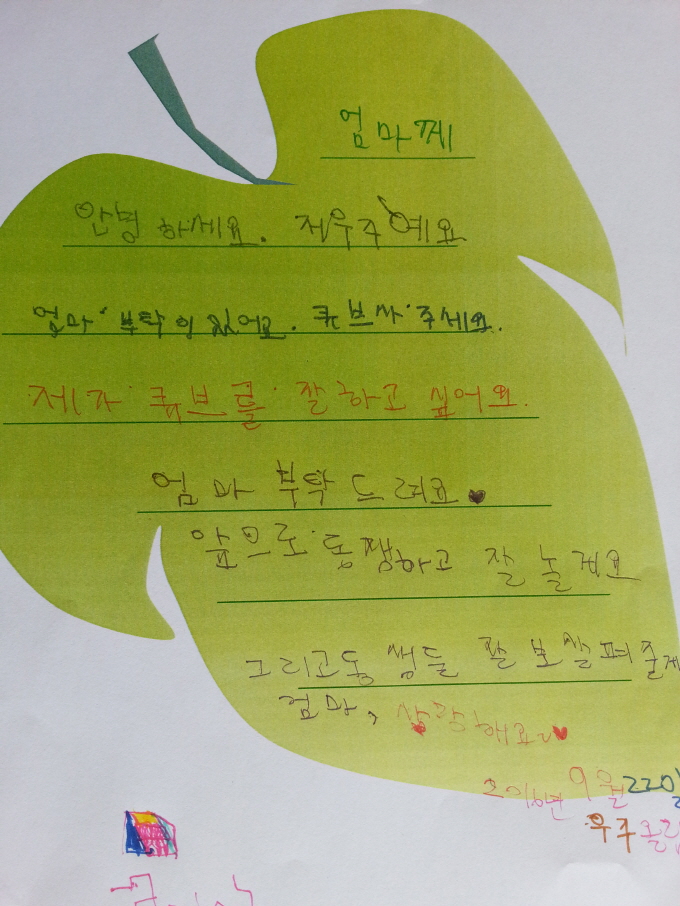 엄마께
안녕하세요. 저우주예요
엄마 부탁이 있어요. 큐브사주세요.
제가 큐브를 잘하고 싶어요.
엄마 부탁드려요♥
앞으로 동쟁하고 잘 놀게요
그리고동 생들 잘 보살펴 줄게
엄마, 사랑해요~♥
2016년 9월22일
우주올림